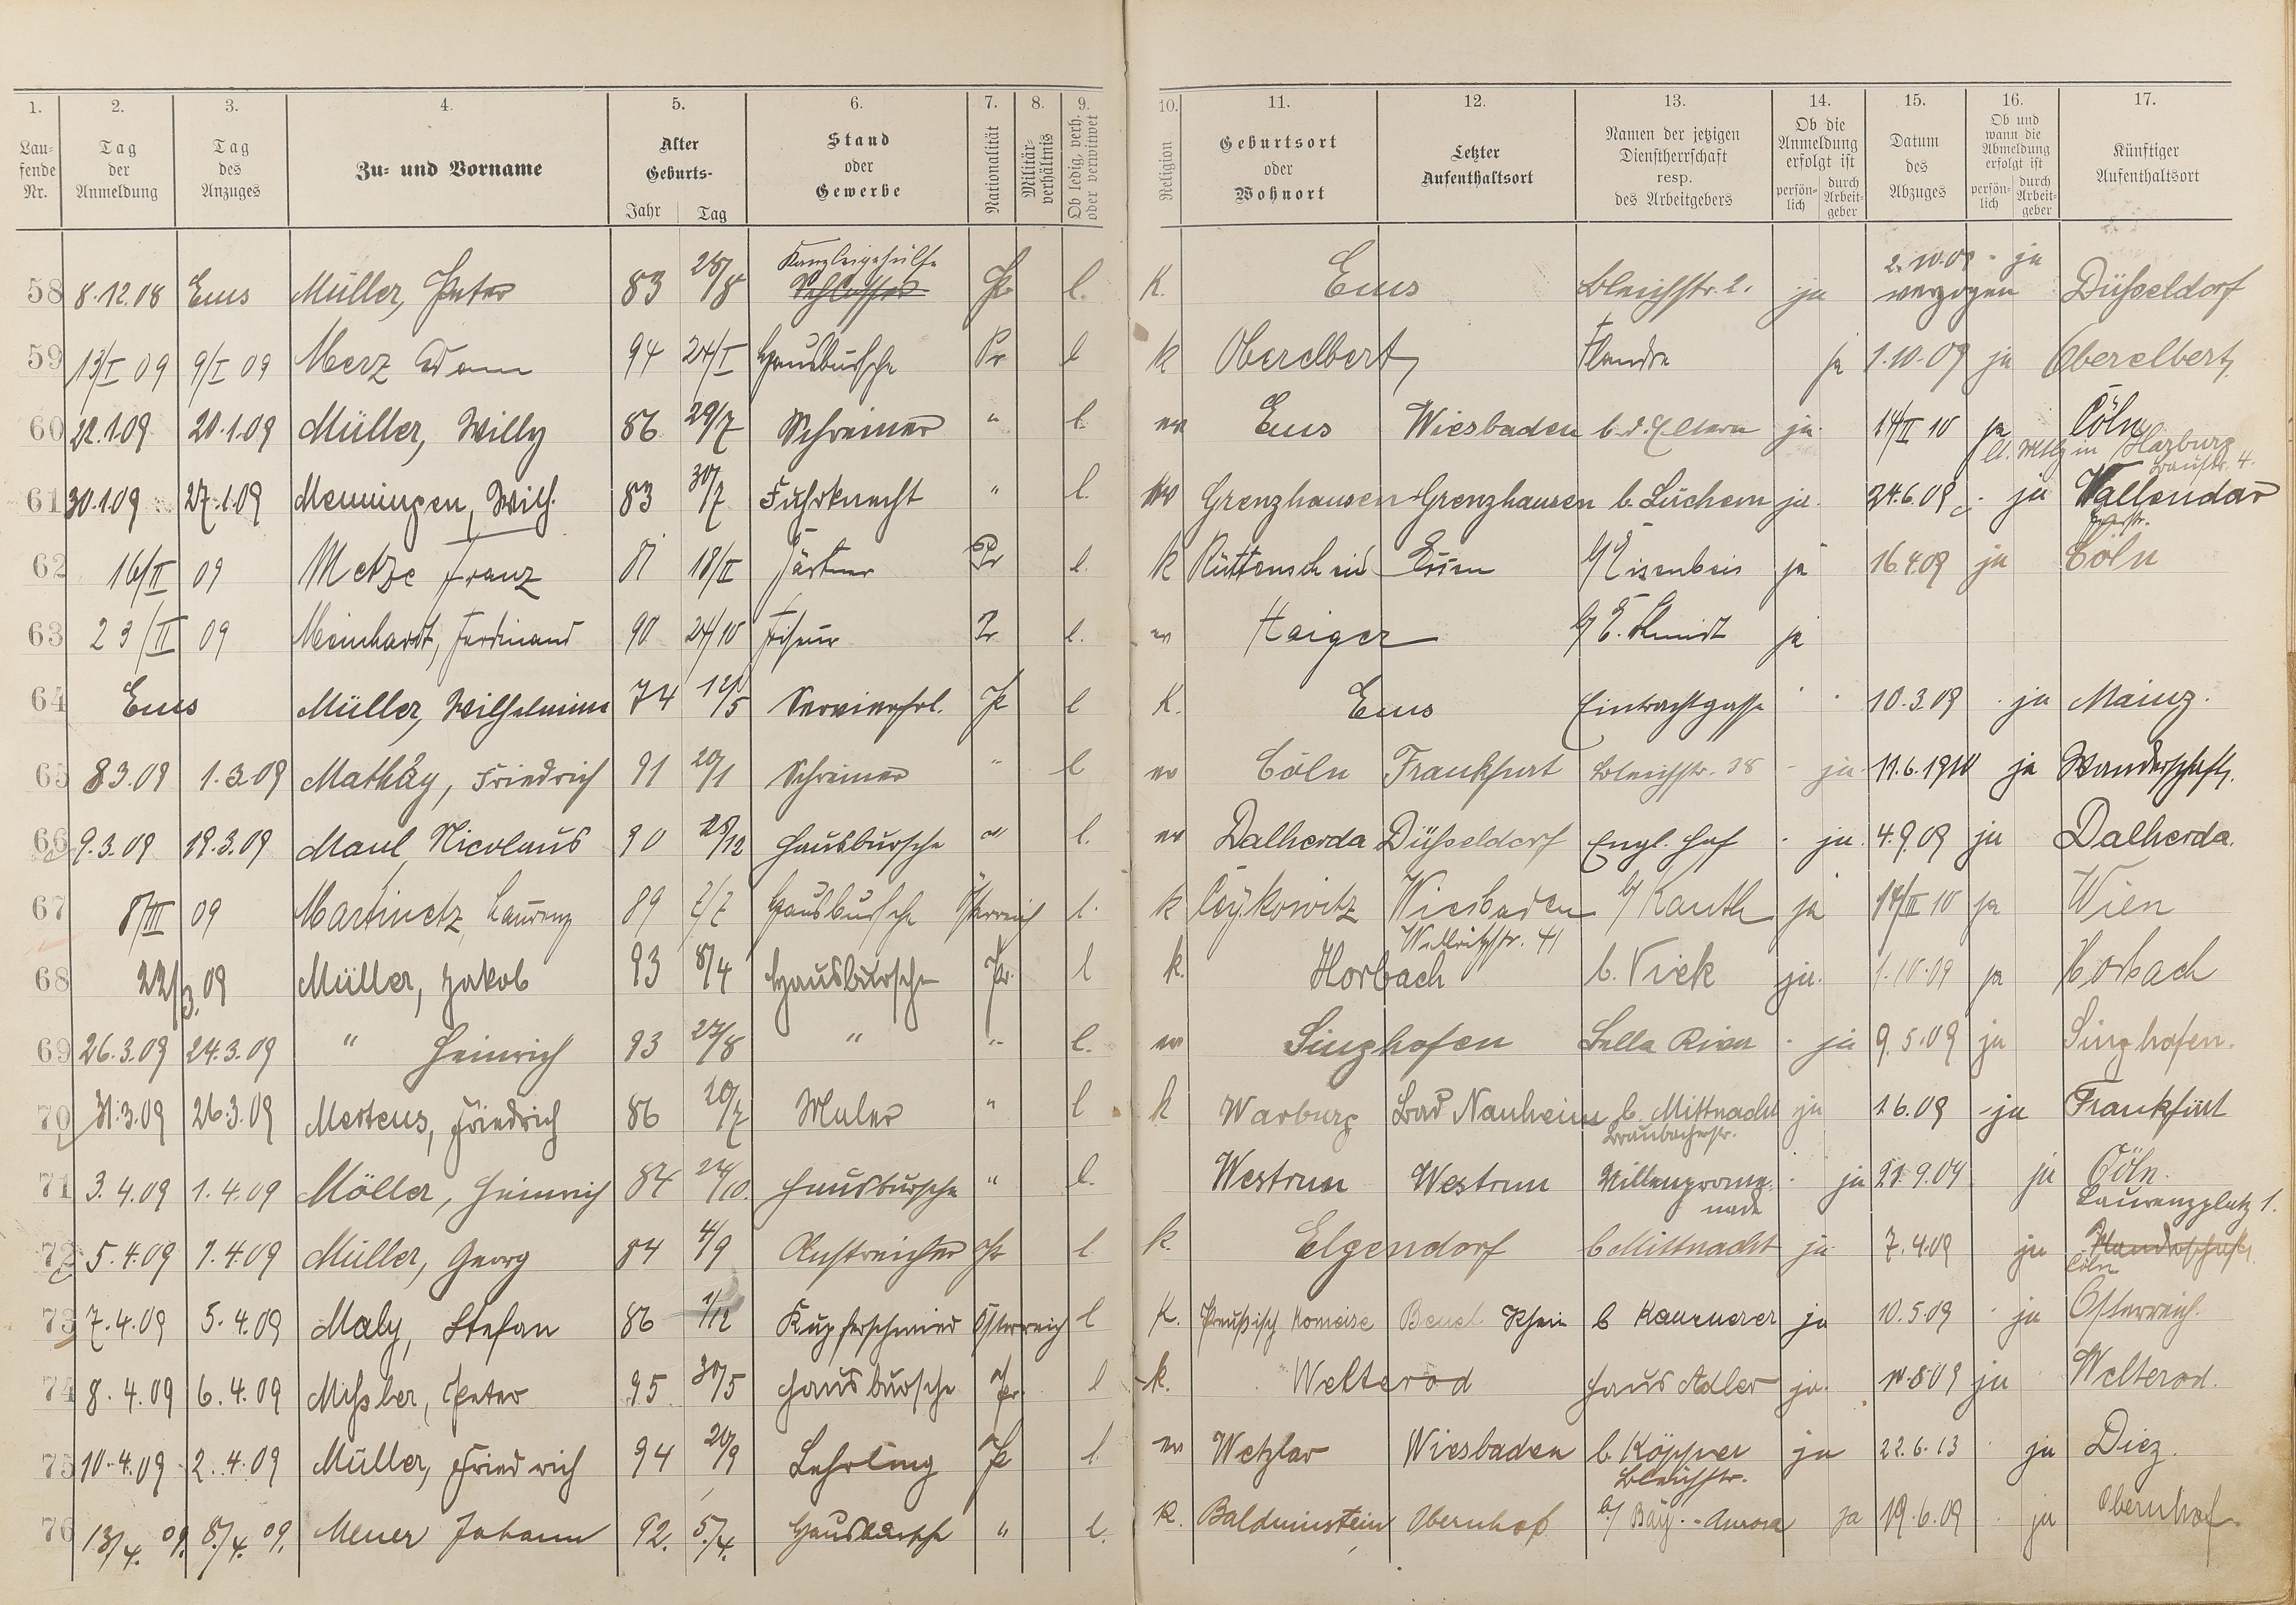 1. 2. 3. 4. 5. 6. 7. 8. 9. 10. 11. 12. 13. 14. 15. 16. 17.
Laufende Nr. Tag der Anmeldung Tag des Anzuges Zu- und Vorname Alter Geburts- Jahr Tag Stand oder Gewerbe Nationalität Militärverhältnis Ob ledig, verh. oder verwitwet Religion Geburtsort oder Wohnort Letzter Aufenthaltsort Namen der jetzigen Dienstherrschaft resp. des Arbeitgebers Ob die Anmeldung erfolgt ist persönlich durch Arbeitgeber Datum des Abzuges Ob und wann die Abmeldung erfolgt ist persönlich durch Arbeitgeber Künftiger Aufenthaltsort
58 8.12.08 Ems Müller, Peter 83 28/8 Kanzleigehülfe Schlosser Pr l. K. Ems Bleichstr. 2. ja 2.10.09 - ja verzogen Düsseldorf
59 13/I 09 9/I 09 Merz Adam 94 24/I Hausbursche Pr l k Oberelbert Flandre ja 1.10.09 ja Oberelbert
60 22.1.09 20.1.09 Müller, Willy 86 29/7 Schreiner " l. ev Ems Wiesbaden b. d. Eltern ja 14/II 10 ja Cöln
in Harburg
61 30.1.09 27.1.09 Menningen, Wilh. 83 30/7 Fuhrknecht " l. ev Grenzhausen Grenzhausen b. Lüchem ja. 24.6.09 - ja Vallendar
62 16/II 09 Metze Franz 81 18/II Gärtner Pr l. k Rüttenscheid Essen b/ Eisenbeis ja 16.4.09 ja Cöln
63 23/II 09 Meinhardt, Ferdinand 90 24/10 Friseur Pr l. ev Haiger b/ E. Schmidt ja
64 Ems Müller, Wilhelmine 74 12/5 Servierfrl. Pr l K. Ems Eintrachtgasse 10.3.09 - ja Mainz.
65 8.3.09 1.3.09 Mathäy, Friedrich 91 20/1 Schreiner " l ev Cöln Frankfurt Bleichstr. 38 - ja 11.6.1910 ja Wanderschaft.
66 9.3.09 19.3.09 Maul, Nicolaus 90 28/12 Hausbursche " l. ev Dalherda Düsseldorf Engl. Hof - ja. 4.9.09 ja Dalherda.
67 8/III 09 Martinetz, Laurenz 89 7/7 Hausbursche Österreich l. k Ceykowitz Wiesbaden b/ Kauth ja 14/II 10 ja Wien
Wellritzstr. 41
68 22/3. 09 Müller, Jakob 93 8/4 Hausbursche Pr. l k. Horbach b. Viek ja. 1.10.09 ja Horbach
69 26.3.09 24.3.09 " Heinrich 93 27/8 " " l. ev Singhofen Bella Riva - ja 9.5.09 ja Singhofen.
70 31.3.09 26.3.09 Mertens, Friedrich 86 20/7 Maler " l k Warburg Bad Nauheim b. Mittnacht ja 1.6.09 - ja Frankfurt
Braubacherstr.
71 3.4.09 1.4.09 Möller, Heinrich 84 24/10. Hausbursche " l. Westrum Westrum Villenpromenade - ja 21.9.09 ja Cöln.
Laurenzplatz 1.
72 5.4.09 1.4.09 Müller, Georg 84 4/9 Anstreicher Pr l. k. Elgendorf b Mittnacht ja 7.4.09 ja Wanderschaft.
Cöln
73 7.4.09 5.4.09 Maly, Stefan 86 1/12 Kupferschmied Österreich l K. Preußisch Beuel Rhein b Kammerer ja 10.5.09 - ja Österreich.
74 8.4.09 6.4.09 Mißler, Peter 95 30/5 Hausbursche Pr. l k. Welterod Haus Adler ja. 10.8.09 ja Welterod.
75 10.4.09 2.4.09 Müller, Friedrich 94 20/9 Lehrling Pr l. ev Wetzlar Wiesbaden b. Köpper ja 22.6.13 ja Diez.
Bleichstr.
76 13/4. 09. 8/4. 09. Meuer Johann 92. 5./4. Hausbursche " l. K. Balduinstein Obernhof b/ Bay. - Aurora ja 19.6.09 ja Obernhof.